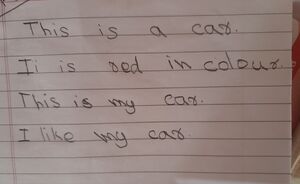 This is a car.
Ii is red in colour.
This is my car.
I like my car.